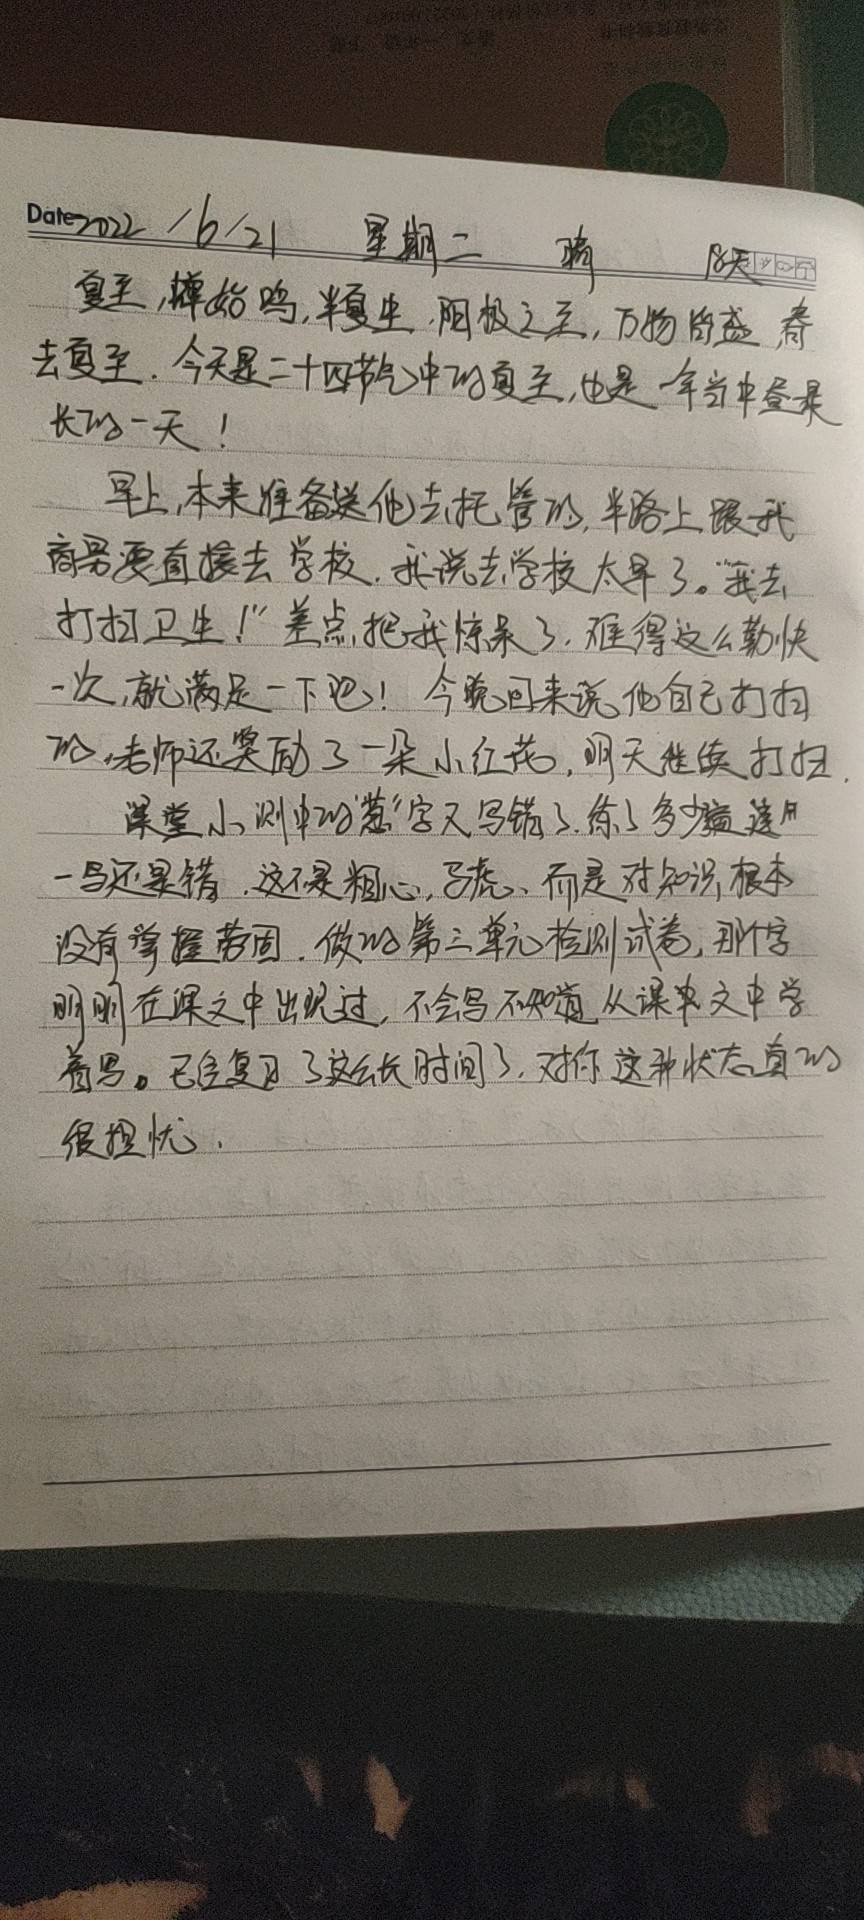 Date 2022/6/21 星期二 晴 18天
夏至,蝉始鸣,半夏生,阳极之至,万物皆盛,春
去夏至.今天是二十四节气中的夏至,也是一年当中昼最
长的一天!
早上,本来准备送他去托管的,半路上跟我
商另要直接去学校.我说去学校太早了。"我去
打扫卫生!"差点把我惊呆了.难得这么勤快
一次,就满足一下吧!今晚回来说他自己打扫
的,老师还奖励了一朵小红花,明天继续打扫.
课堂小测中的"葱"字又写错了.练了多少遍
一写还是错.这不是粗心,马虎、而是对知识根本
没有掌握劳固.做的第三单元检测试卷,那个字
明明在课文中出现过,不会写不知道从课文中学
着写。已经复习了这么长时间了.对你这种状态真的
很担忧.